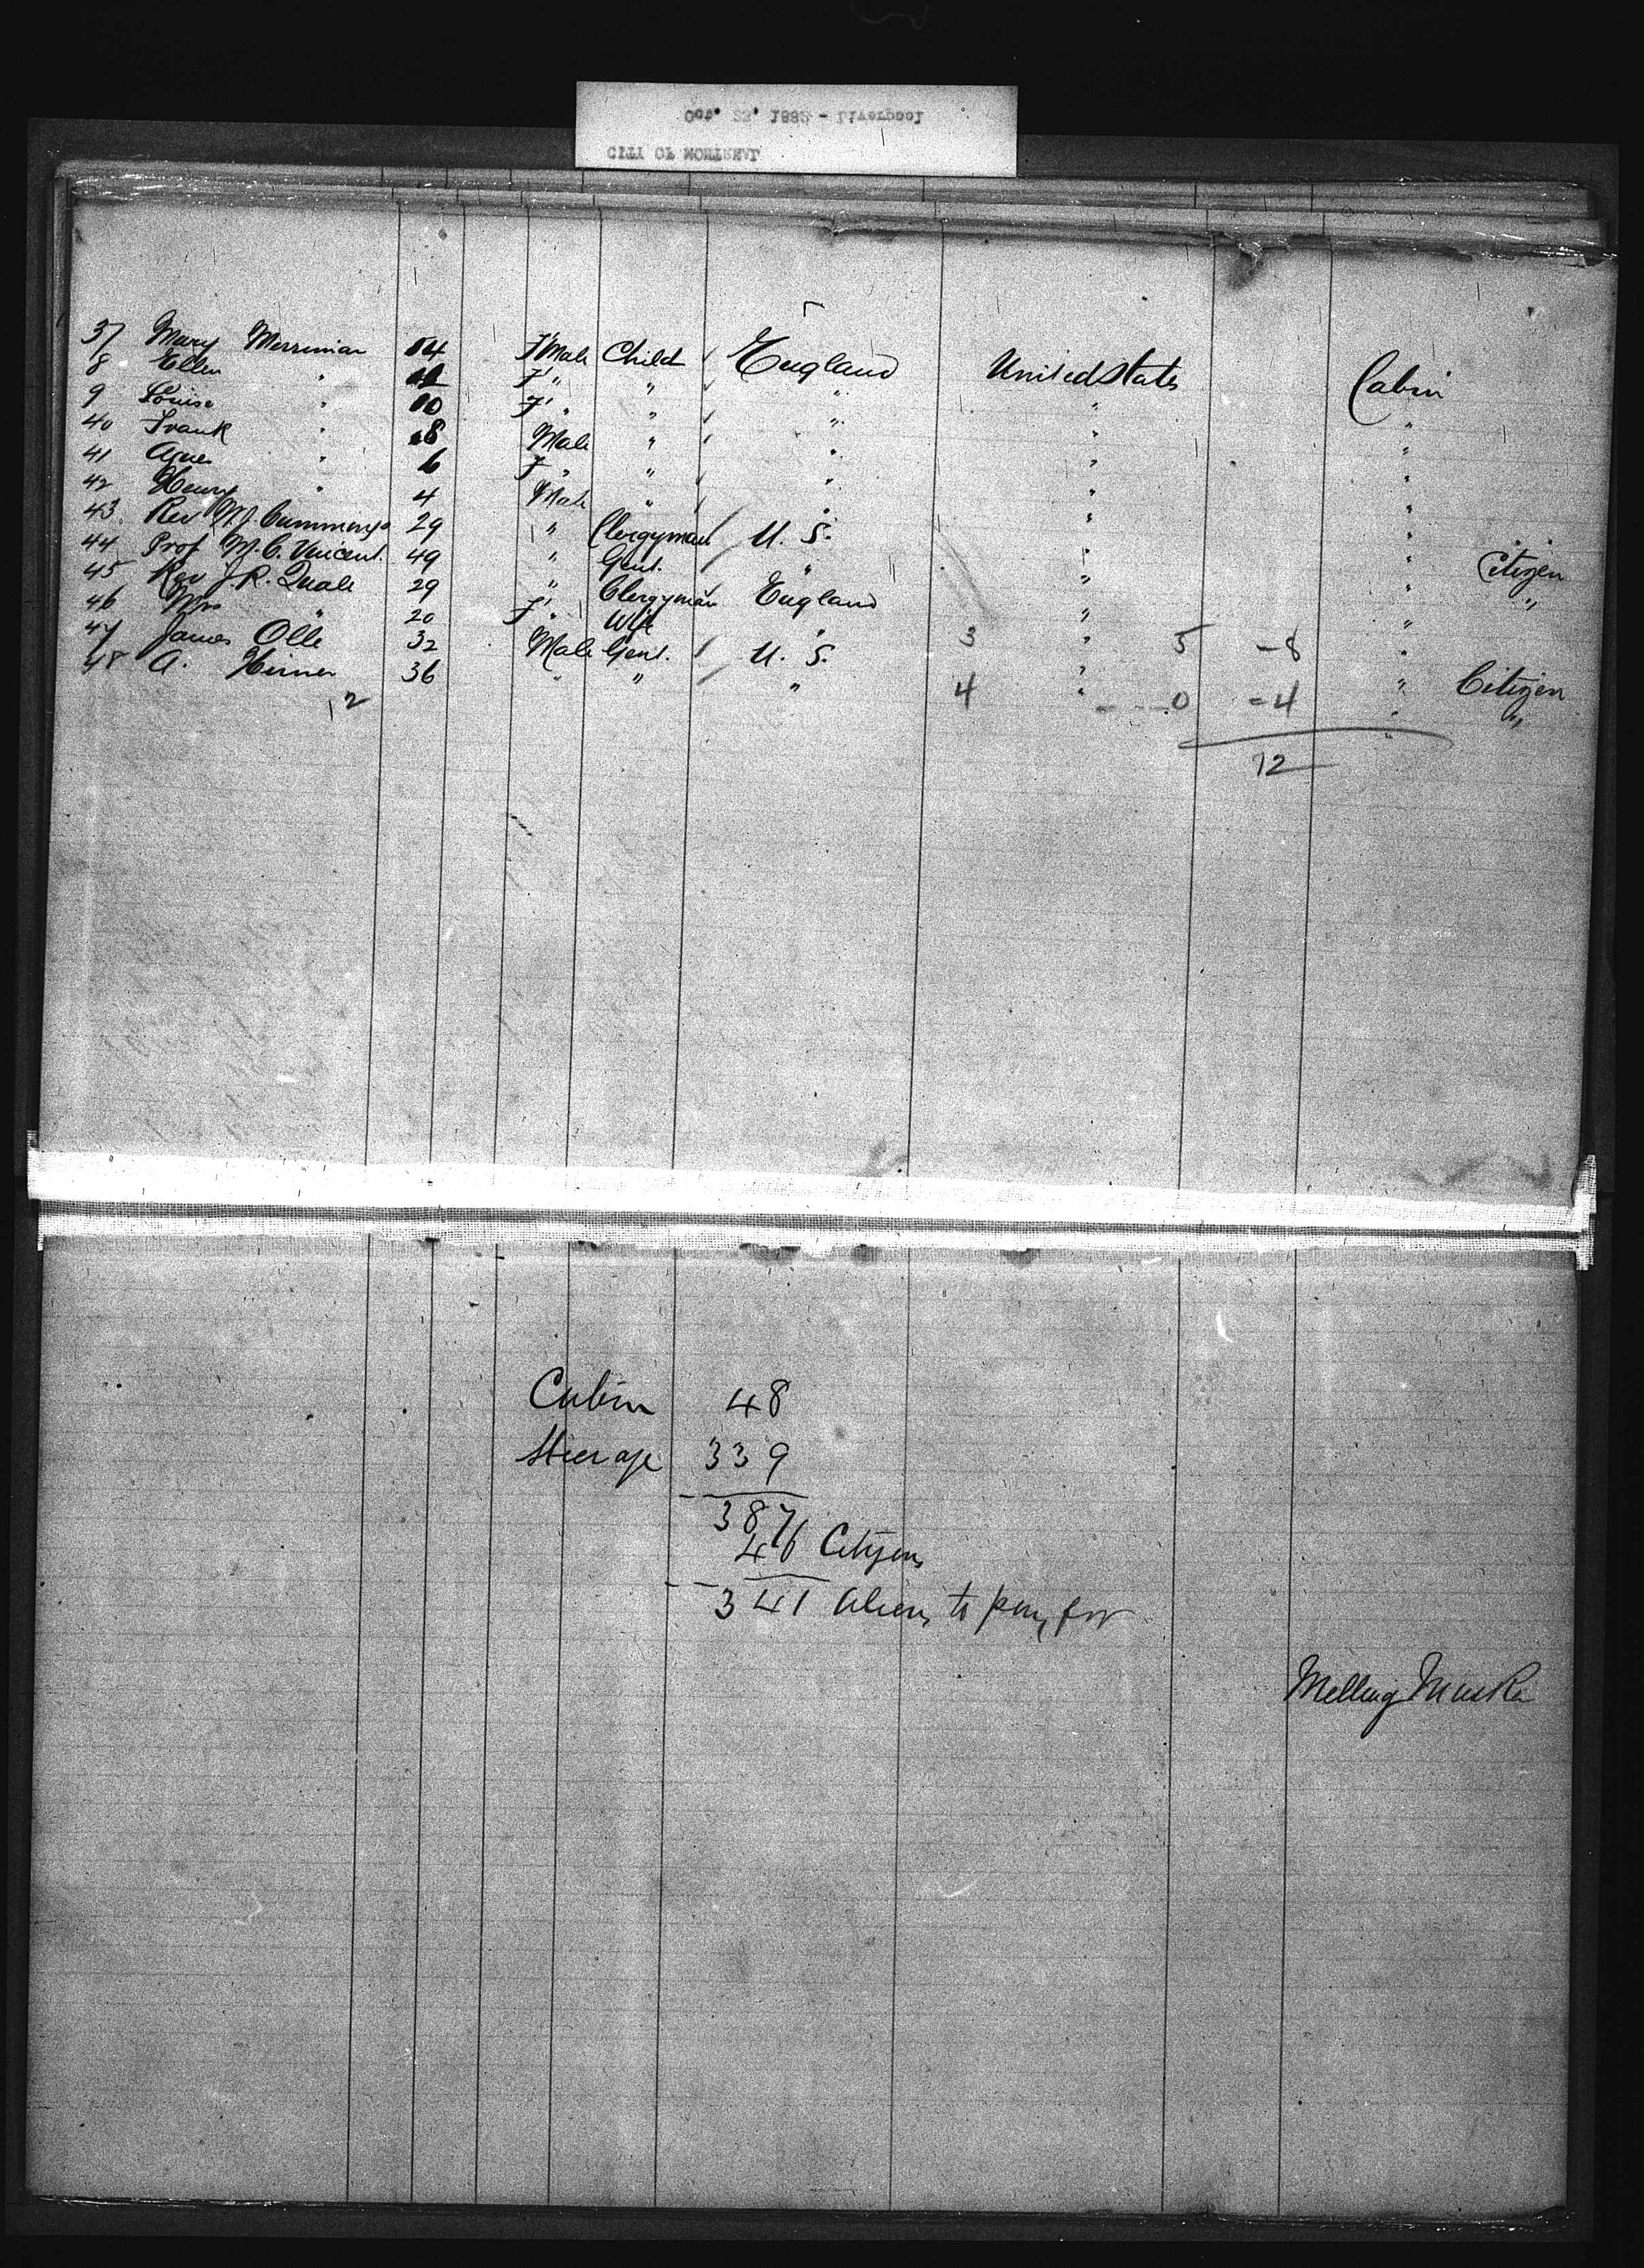 Oct. 22, 1885 - Liverpool
CITY OF MONTREAL
37 Mary Merriman 14 F'Male Child England United States Cabin
8 Ellen " 12 F' " " " " "
9 Louise " 10 F' " " " " "
40 Frank " 8 Male " " " "
41 Agnes " 6 F " " " " "
42 Henry " 4 Male " " " "
43 Rev W.J. Cummings 29 " Clergyman U. S. " " Citizen
44 Prof M. C. Vincent. 49 " Gent. " " " "
45 Rev J. R. Quale 29 " Clergyman England " "
46 Mrs " 20 F' " Wife " " "
47 James Olle 32 Male Gent. U. S. " " Citizen
48 A. 36 " " " " " "
12
3 5 - 8
4 0 = 4
12
Cabin 48
Steerage 339
387
46 Citizens
341 Aliens to pay for